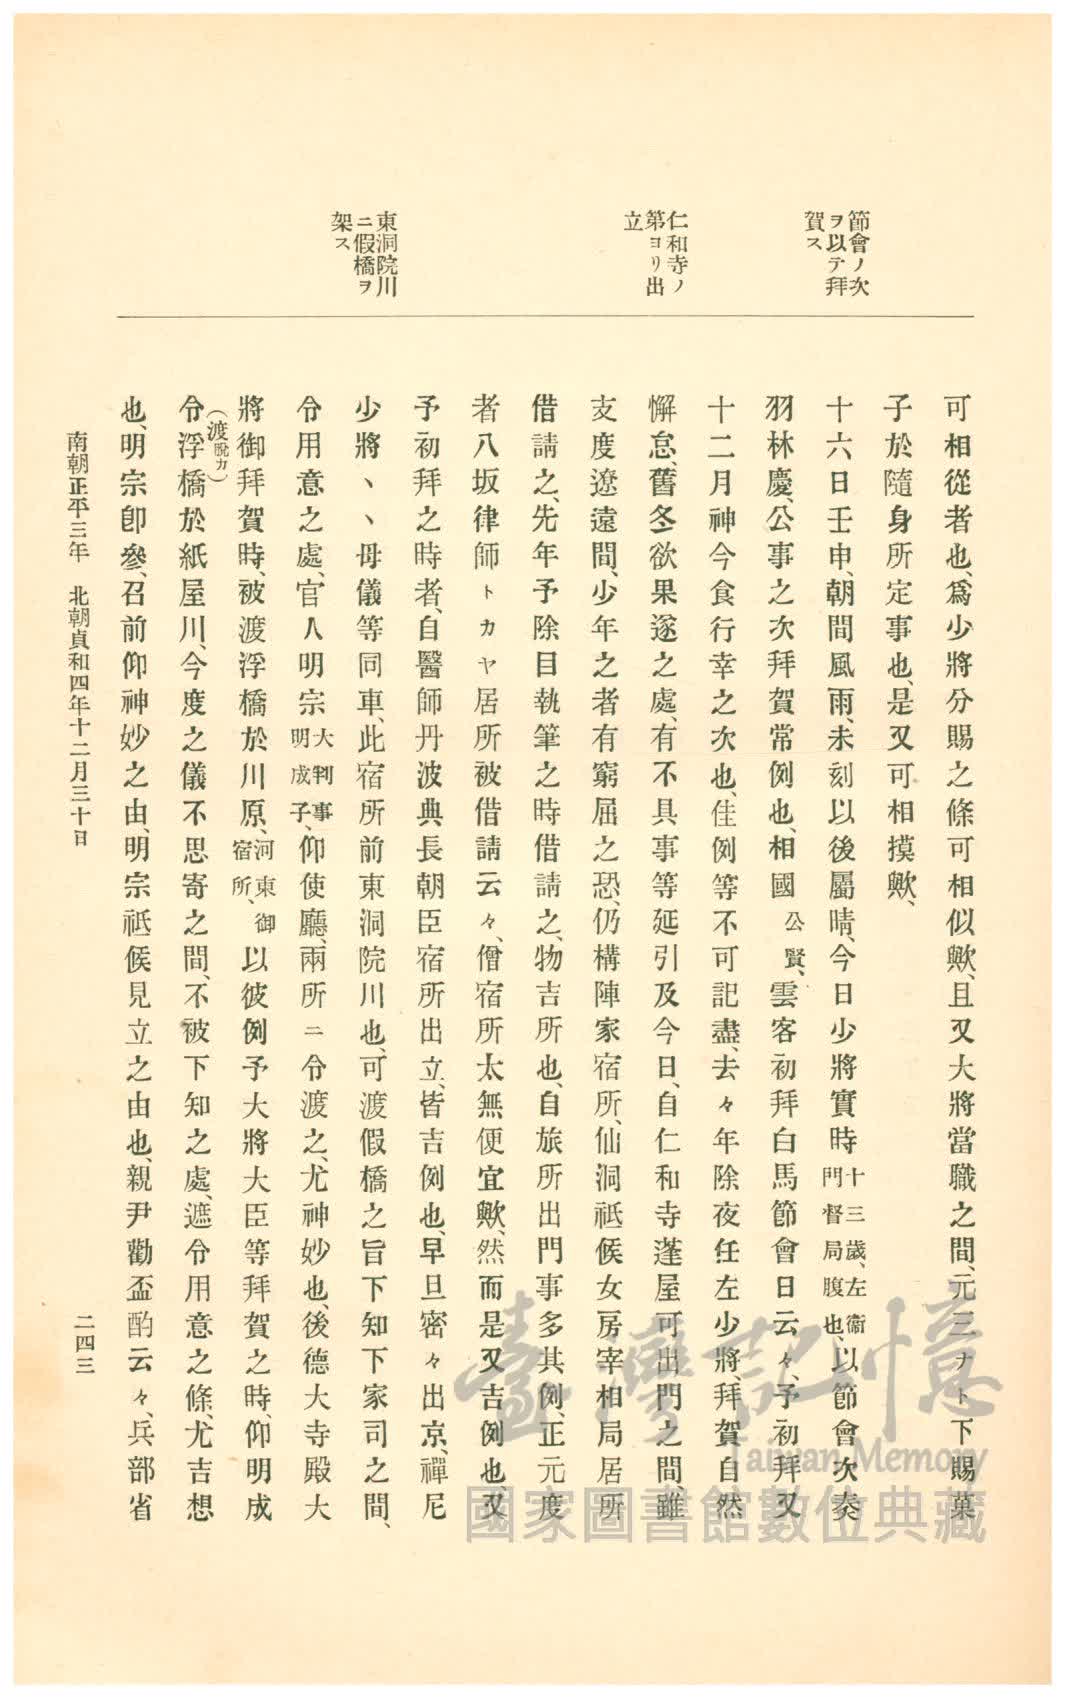 節會ノ次
ヲ以テ拜
賀ス
仁和寺ノ
第ヨリ出
立
東洞院川
ニ假橋ヲ
架ス
可相從者也、爲少將分賜之條可相似歟、且又大將當職之間、元三ナト下賜菓
子於隨身所定事也、是又可相摸歟、
十六日壬申、朝間風雨、未刻以後屬晴、今日少將實時十三歲、左衞門督局腹也、以節會次奏
羽林慶、公事之次拜賀常例也、相國公賢、雲客初拜白馬節會日云々、予初拜又
十二月神今食行幸之次也、佳例等不可記盡、去々年除夜任左少將、拜賀自然
懈怠、舊冬欲果遂之處、有不具事等延引及今日、自仁和寺蓬屋可出門之間、雖
支度遼遠間、少年之者有窮屈之恐、仍構陣家宿所、仙洞祗候女房宰相局居所
借請之、先年予除目執筆之時借請之、物吉所也、自旅所出門事多其例、正元度
者八坂律師トカヤ居所被借請云々、僧宿所太無便宜歟、然而是又吉例也、又
予初拜之時者、自醫師丹波典長朝臣宿所出立、皆吉例也、早旦密々出京、禪尼
少將丶丶母儀等同車、此宿所前東洞院川也、可渡假橋之旨下知下家司之間、
令用意之處、官人明宗大判事明成子、仰使廳、兩所ニ令渡之、尤神妙也、後德大寺殿大
將御拜賀時、被渡浮橋於川原、河東御宿所、以彼例予大將大臣等拜賀之時、仰明成
（渡脫カ）
令浮橋於紙屋川、今度之儀不思寄之間、不被下知之處、遮令用意之條、尤吉想
也、明宗卽參、召前仰神妙之由、明宗祗候見立之由也、親尹勸盃酌云々、兵部省
南朝正平三年　北朝貞和四年十二月三十日
二四三
臺灣記憶
Taiwan Memory
國家圖書館數位典藏